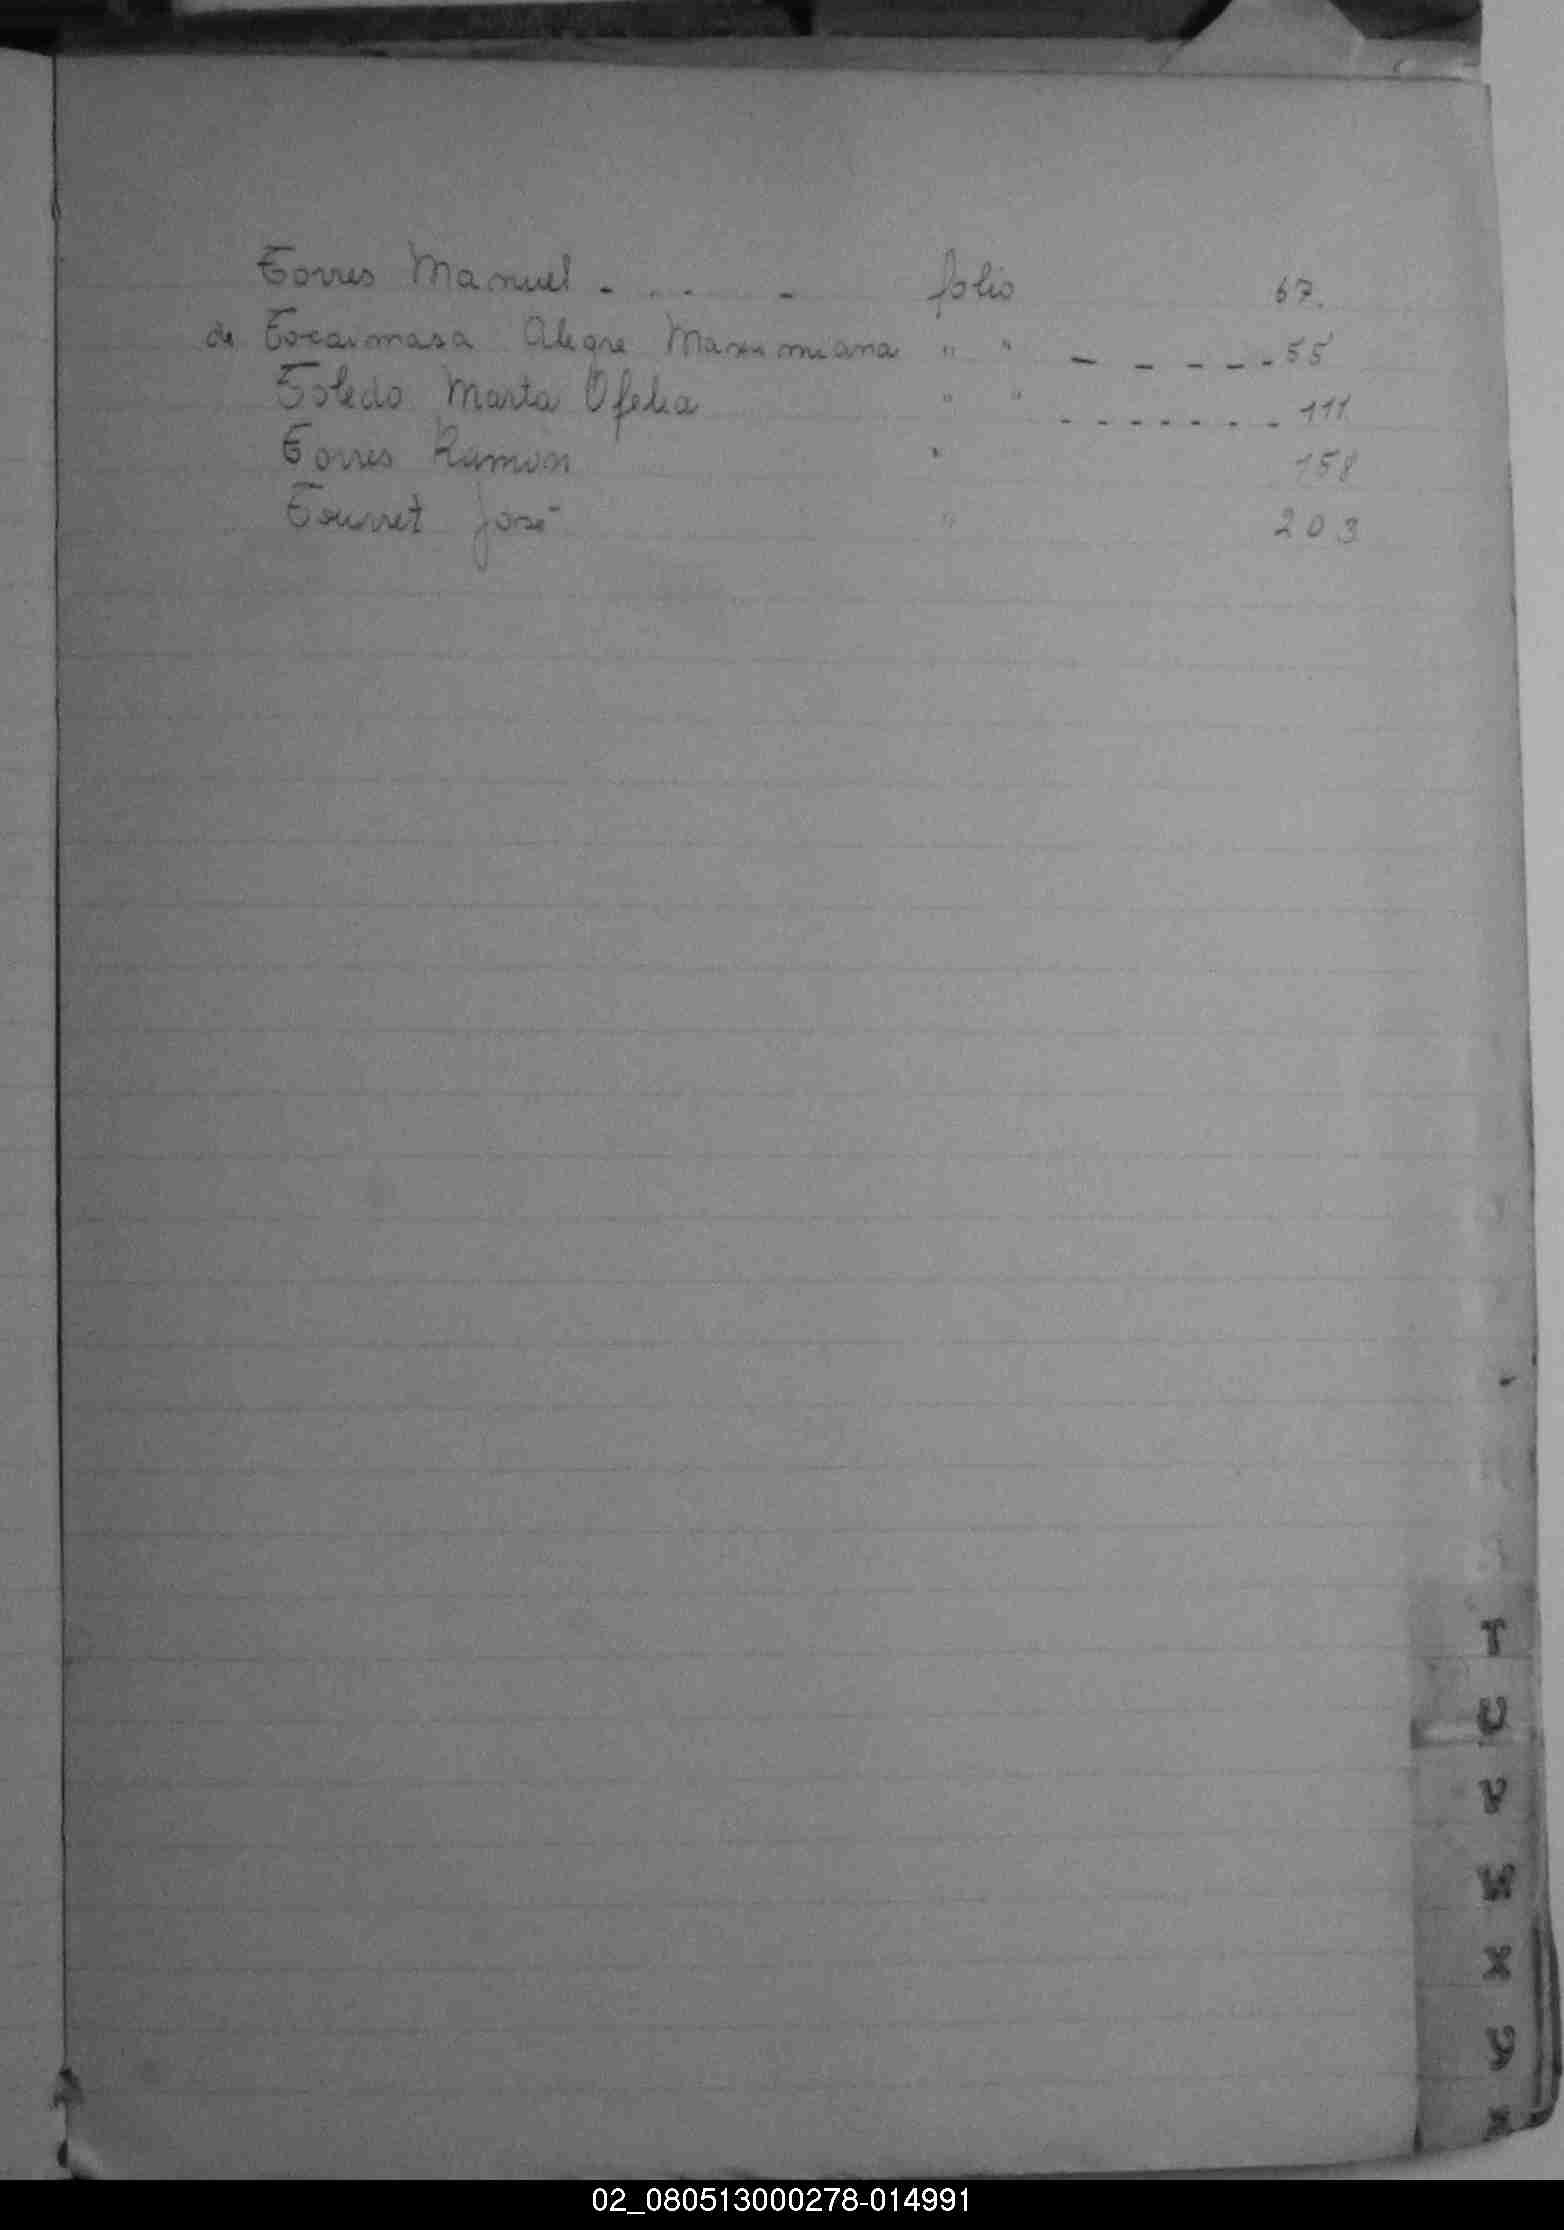 Torres Manuel - - - - - folio 67.
de Tocaimasa Alegre Maximiana " " - - - - - 55
Toledo Marta Ofelia " " - - - - - - - 111
Torres Ramón " 158
Tourret José " 203
T
U
V
W
X
Y
Z
02_080513000278-014991